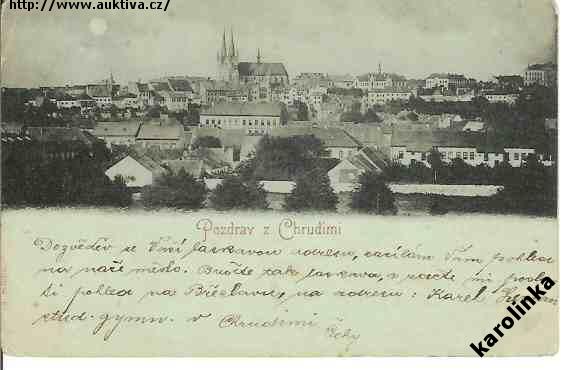 http://www.auktiva.cz/
Pozdrav z Chrudimi
Dozvěděv se Vaší laskavou adresu, zasílám Vám pohled
na naše město. Buďte tak laskava, a račte mi posla-
ti pohled na Břeclavu, na adresu: Karel
stud. gymn. v Chrudimi
Čechy
karolinka